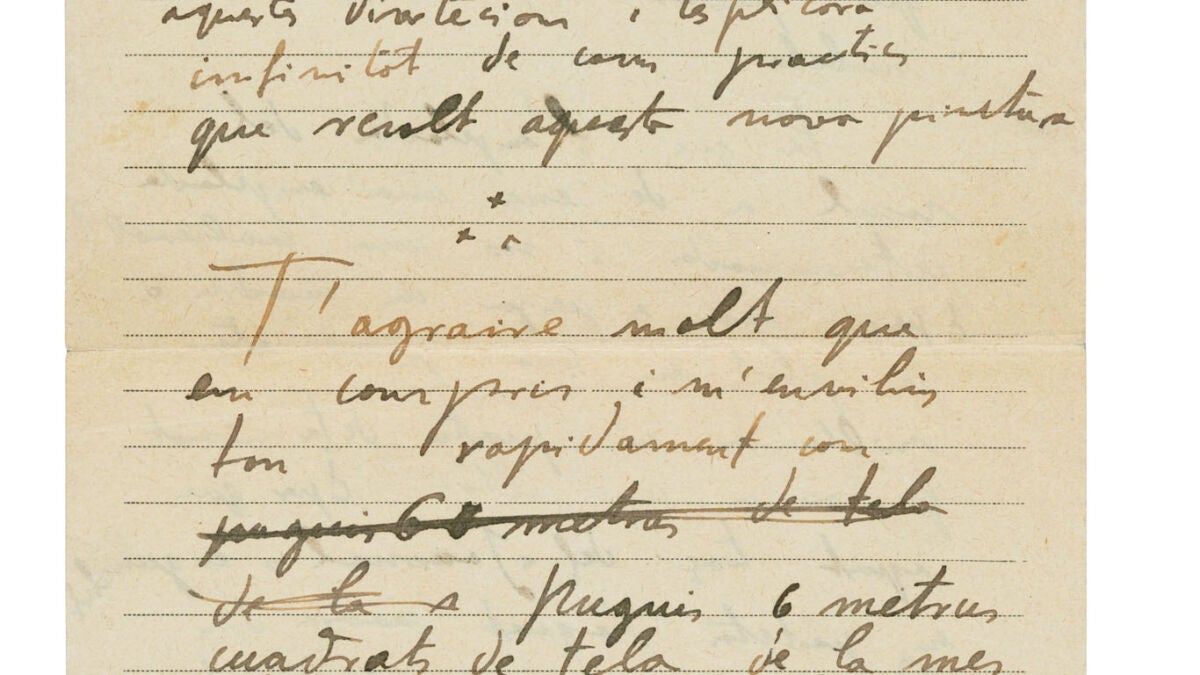 aquestes disertacions i esplicará
infinitót de cosas practics
que resolt aquesta nova pinctura
T'agraire molt que
em compres i m'enviliis
ton rapidament con
puguis 6 8 metras de tela
de la a puguis 6 metrus
cuadrats de tela de la mes